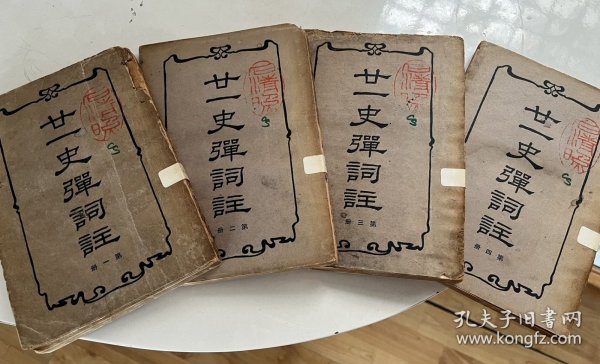 廿一史彈詞註
第一冊
廿一史彈詞註
第二冊
廿一史彈詞註
第三冊
廿一史彈詞註
第四冊
孔夫子旧书网
www.kongfz.com